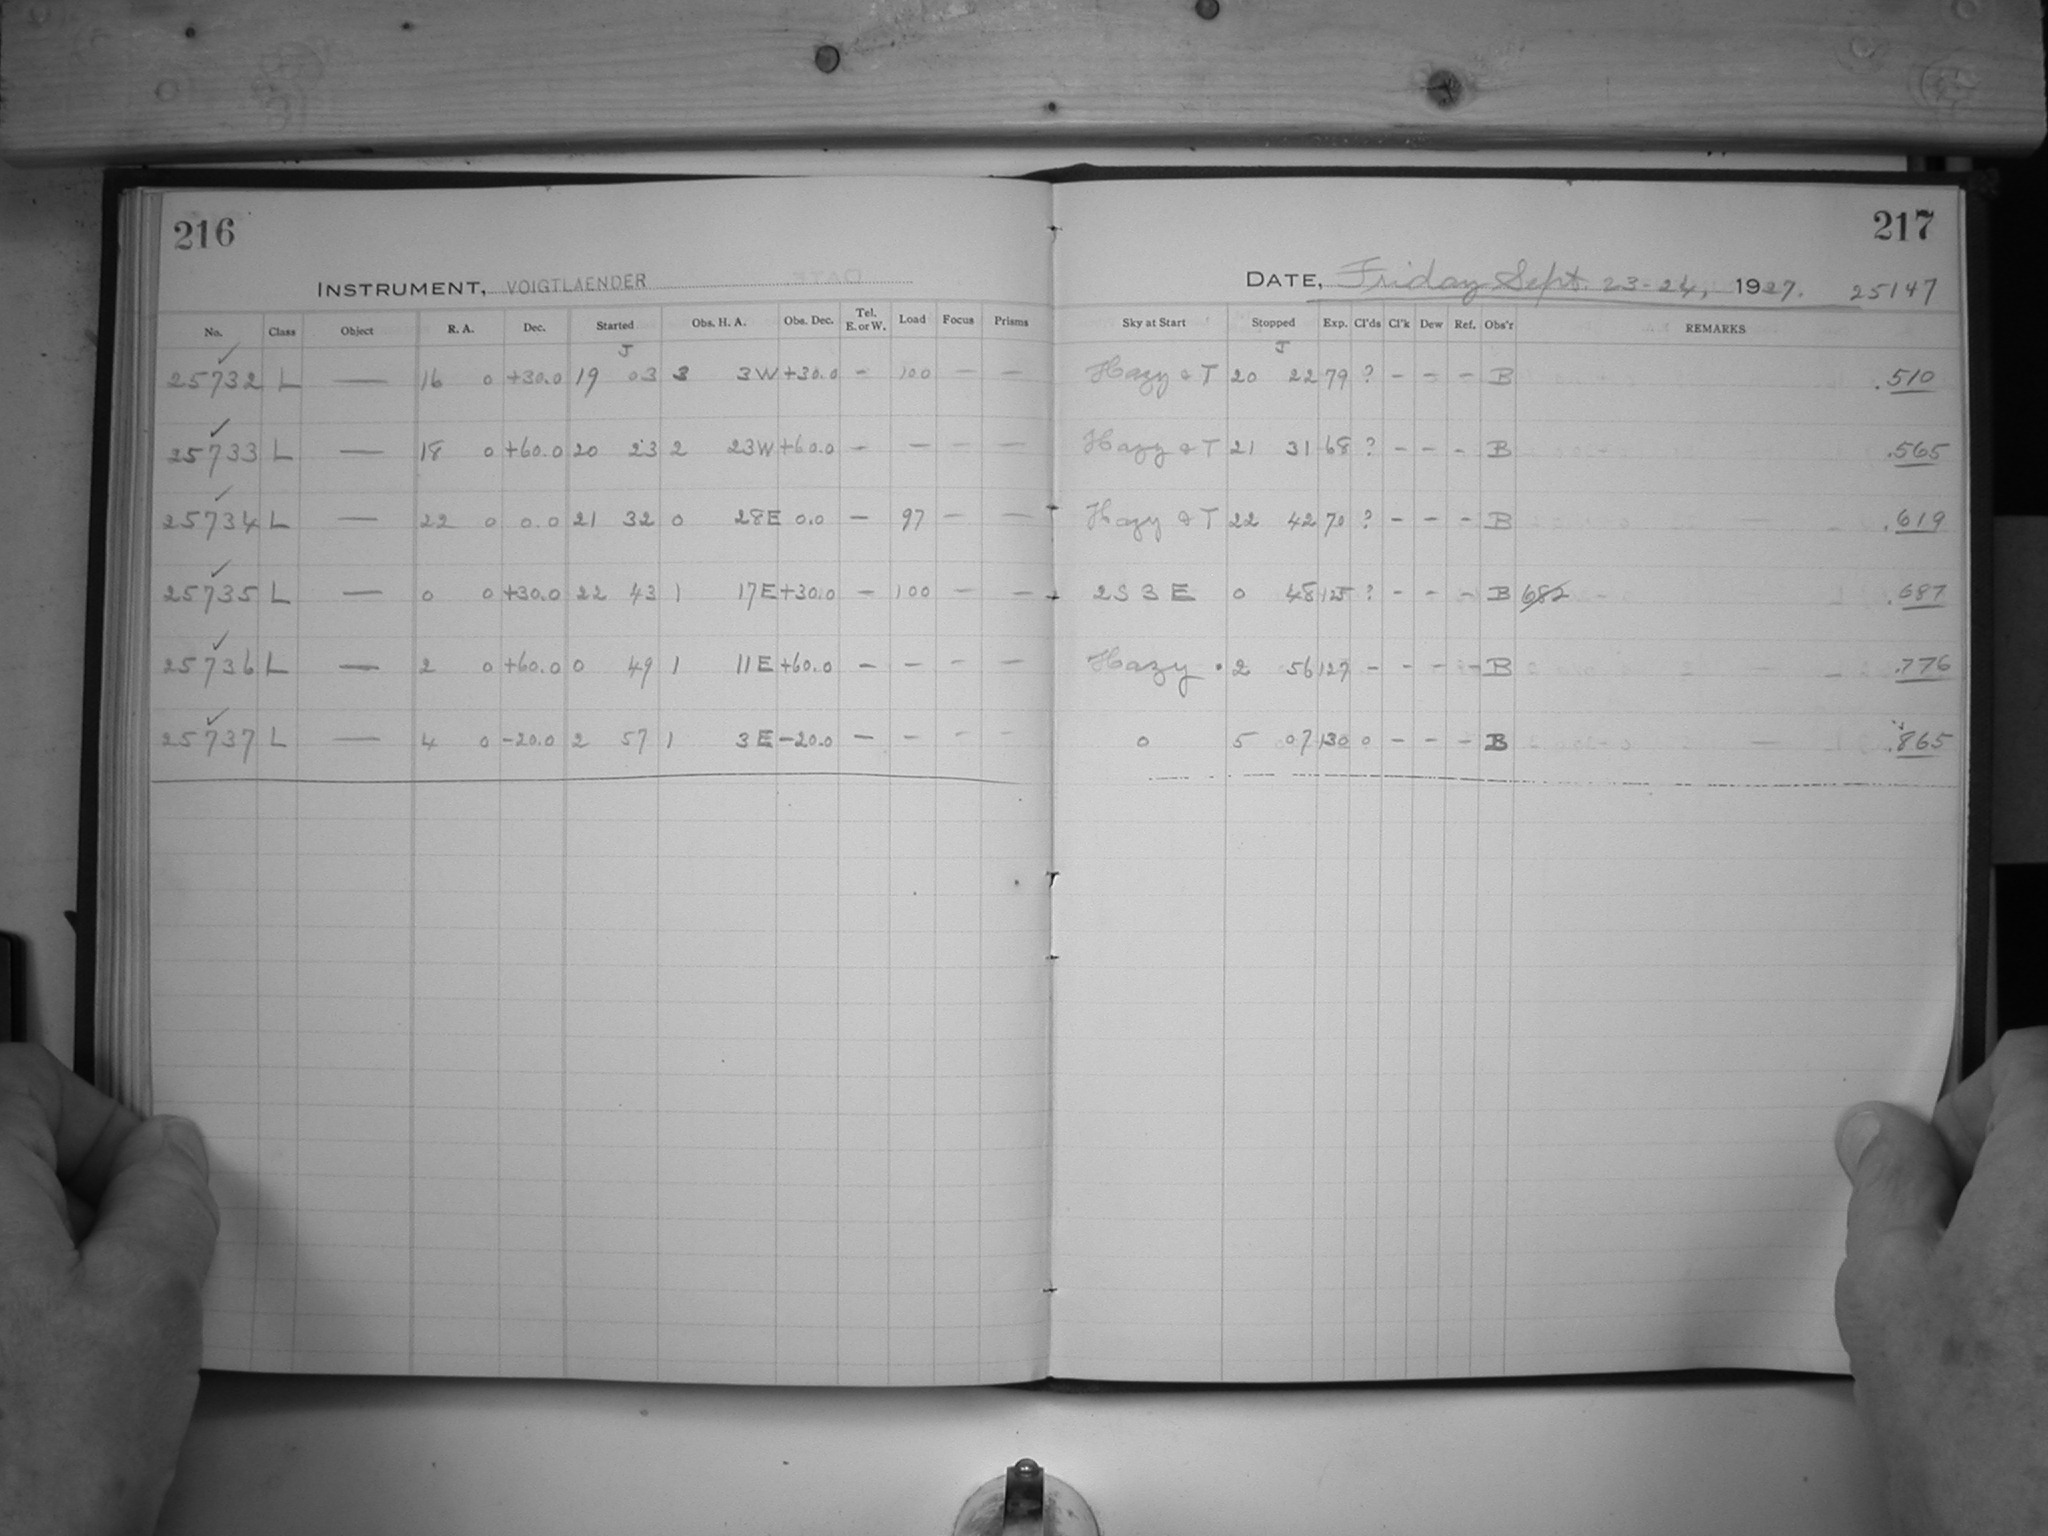 216
INSTRUMENT, VOIGTLAENDER
No. Class Object R. A. Dec. Started Obs. H. A. Obs. Dec. Tel. E. or W. Load Focus Prisms
J
25732 L — 16 0 +30.0 19 03 3 3W +30.0 - 100 - -
25733 L — 18 0 +60.0 20 23 2 23W +60.0 - - - -
25734 L — 22 0 0.0 21 32 0 28E 0.0 - 97 - -
25735 L — 0 0 +30.0 22 43 1 17E +30.0 - 100 - -
25736 L — 2 0 +60.0 0 49 1 11E +60.0 - - - -
25737 L — 4 0 -20.0 2 57 1 3E -20.0 - - - -
217
DATE, Friday Sept. 23-24, 1927. 25147
Sky at Start Stopped Exp. Cl'ds Cl'k Dew Ref. Obs'r REMARKS
J
Hazy & T 20 22 79 ? - - - B .510
Hazy & T 21 31 68 ? - - - B .565
Hazy & T 22 42 70 ? - - - B .619
2S 3E 0 48 125 ? - - - B 682 .687
Hazy 2 56 127 - - - - B .776
0 5 07 130 0 - - - B .865